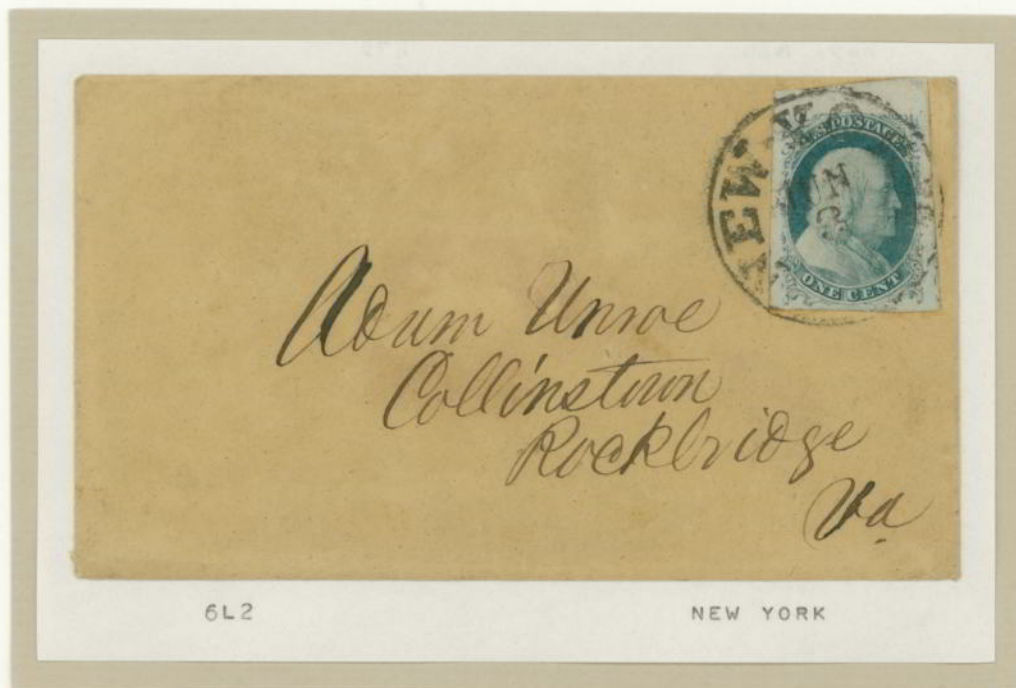 NEW-Y
U.S. POSTAGE
ONE CENT
Adam
Collinstown
Rockbridge
Va
6L2 NEW YORK